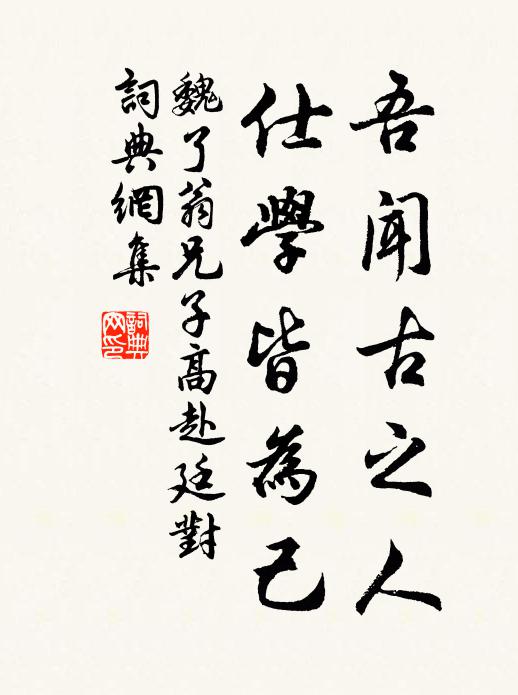 吾聞古之人
仕學皆為己
魏了翁兄子高赴廷對
詞典網集
詞典网印